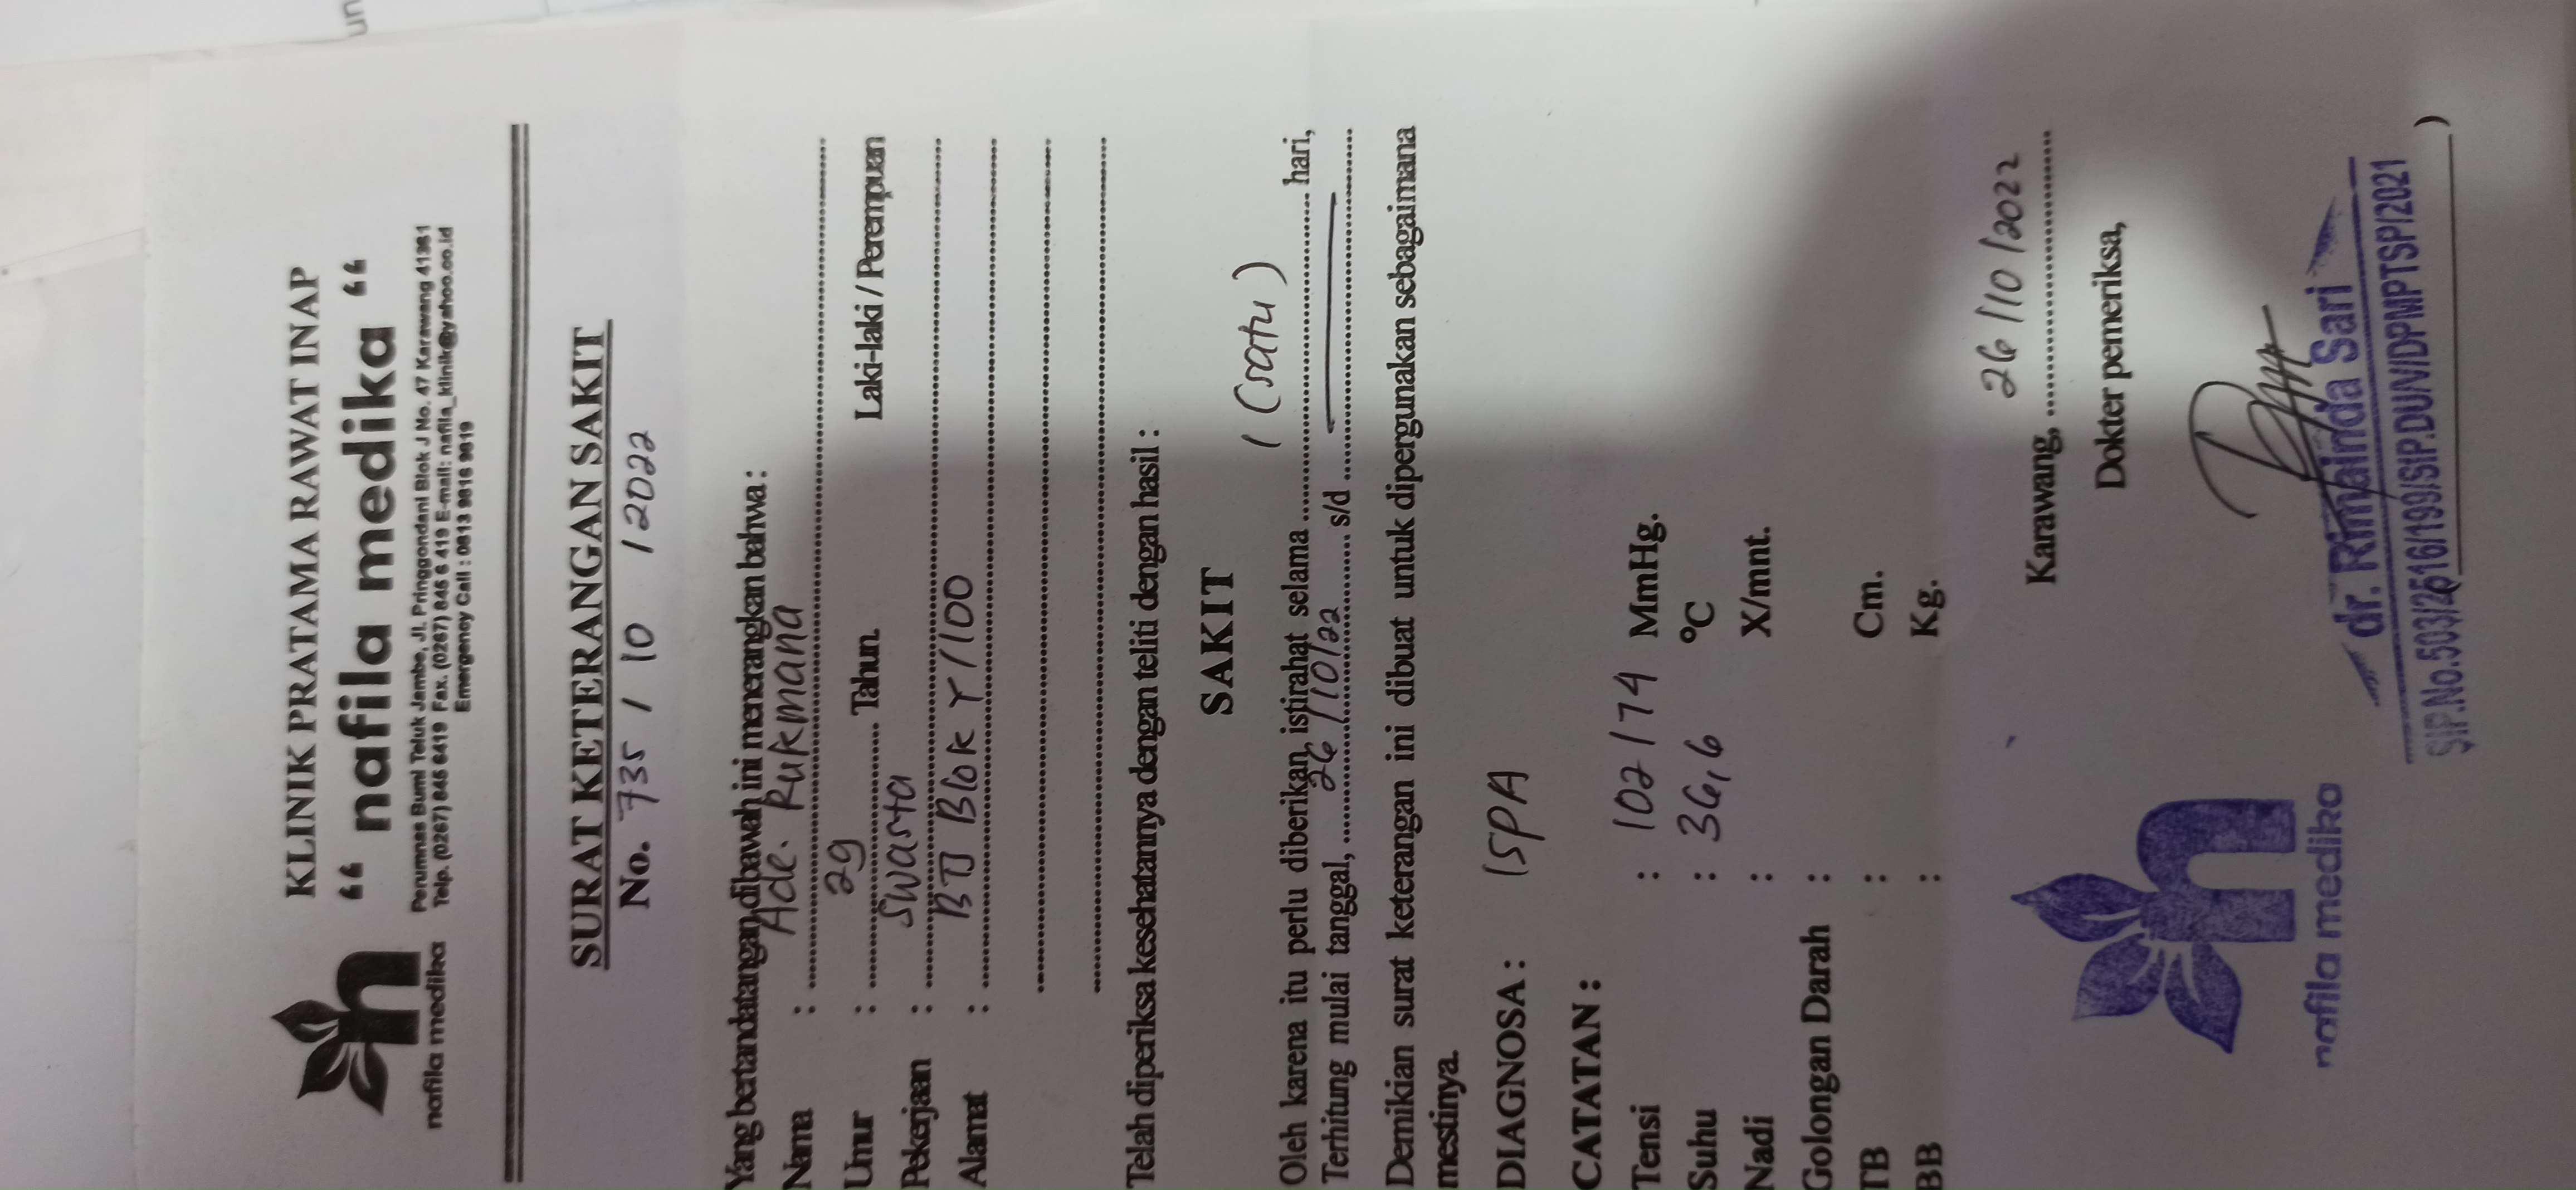 nafila medika
KLINIK PRATAMA RAWAT INAP
“ nafila medika “
Perumnas Bumi Teluk Jambe, Jl. Pringgondani Blok J No. 47 Karawang 41361
Telp. (0267) 845 6419 Fax. (0267) 845 6 419 E-mail: nafila_klinik@yahoo.co.id
Emergency Call : 0813 9816 9819
SURAT KETERANGAN SAKIT
No. 735 / 10 / 2022
Yang bertandatangan dibawah ini menerangkan bahwa :
Nama : Ade. Rukmana
Umur : 29 Tahun. Laki-laki / Perempuan
Pekerjaan : Swasta
Alamat : BTJ Blok Y/100
Telah diperiksa kesehatannya dengan teliti dengan hasil :
SAKIT
Oleh karena itu perlu diberikan istirahat selama 1 (satu) hari,
Terhitung mulai tanggal, 26/10/22 s/d
Demikian surat keterangan ini dibuat untuk dipergunakan sebagaimana
mestinya.
DIAGNOSA : ISPA
CATATAN :
Tensi : 102/74 MmHg.
Suhu : 36,6 °C
Nadi : X/mnt.
Golongan Darah :
TB : Cm.
BB : Kg.
Karawang, 26/10/2022
Dokter pemeriksa,
nafila medika
dr. Rimainda Sari
SIP.No.503/2516/199/SIP.DU/V/DPMPTSP/2021
un